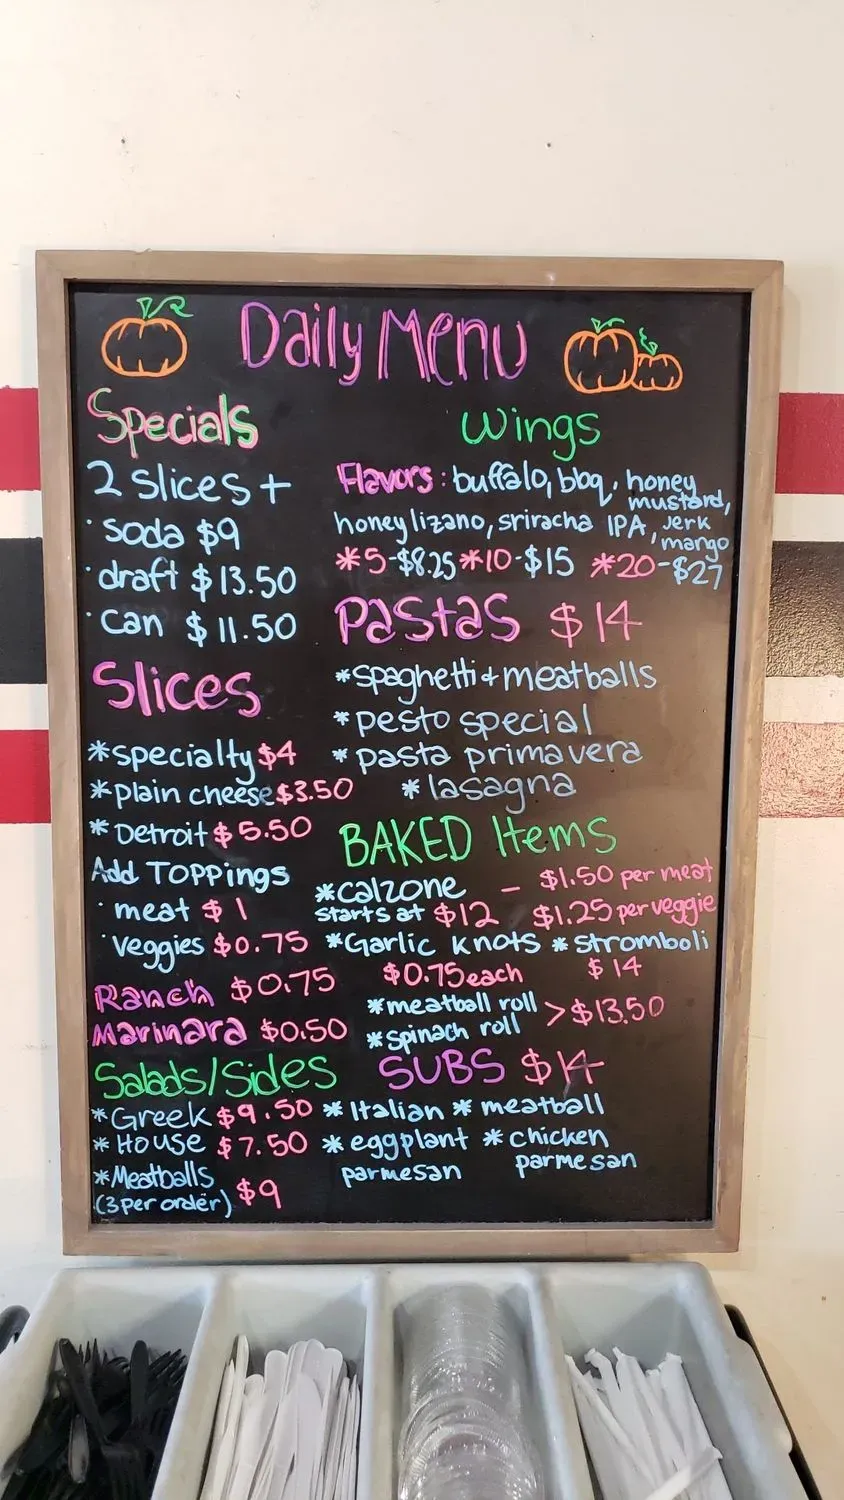 Daily Menu
Specials
2 slices +
· soda $9
· draft $13.50
· can $11.50
Slices
*specialty $4
*plain cheese $3.50
* Detroit $5.50
Add TOPPings
· meat $1
· veggies $0.75
Ranch $0.75
Marinara $0.50
Salads/Sides
*Greek $9.50
* House $7.50
*Meatballs
(3 per order) $9
Wings
Flavors: buffalo, bbq, honey
mustard,
honey lizano, sriracha IPA, jerk
mango
*5-$8.25 *10-$15 *20-$27
Pastas $14
*spaghetti + meatballs
* pesto special
* pasta primavera
* lasagna
BAKED Items
*calzone - $1.50 per meat
starts at $12 $1.25 per veggie
*Garlic knots * stromboli
$0.75 each $14
*meatball roll
*spinach roll > $13.50
SUBS $14
* Italian * meatball
* eggplant * chicken
parmesan parmesan